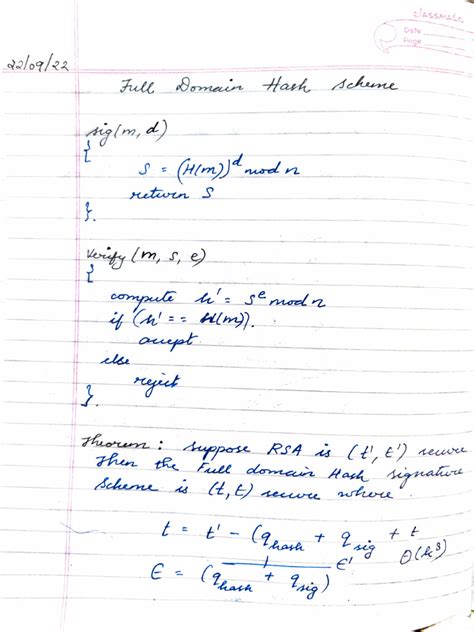 classmate
Date
Page
22/09/22
Full Domain Hash Scheme
sig(m, d)
{
S = (H(m))^d mod n
return S
}.
Verify (m, s, e)
{
compute h' = s^e mod n
if (h' == H(m)).
accept
else
reject
}.
Theorem : suppose RSA is (t', ε') secure
Then the Full domain Hash signature
Scheme is (t, ε) secure where
t = t' - (q_hash + q_sig + t
O(k^3)
ε = (q_hash + q_sig) ε'